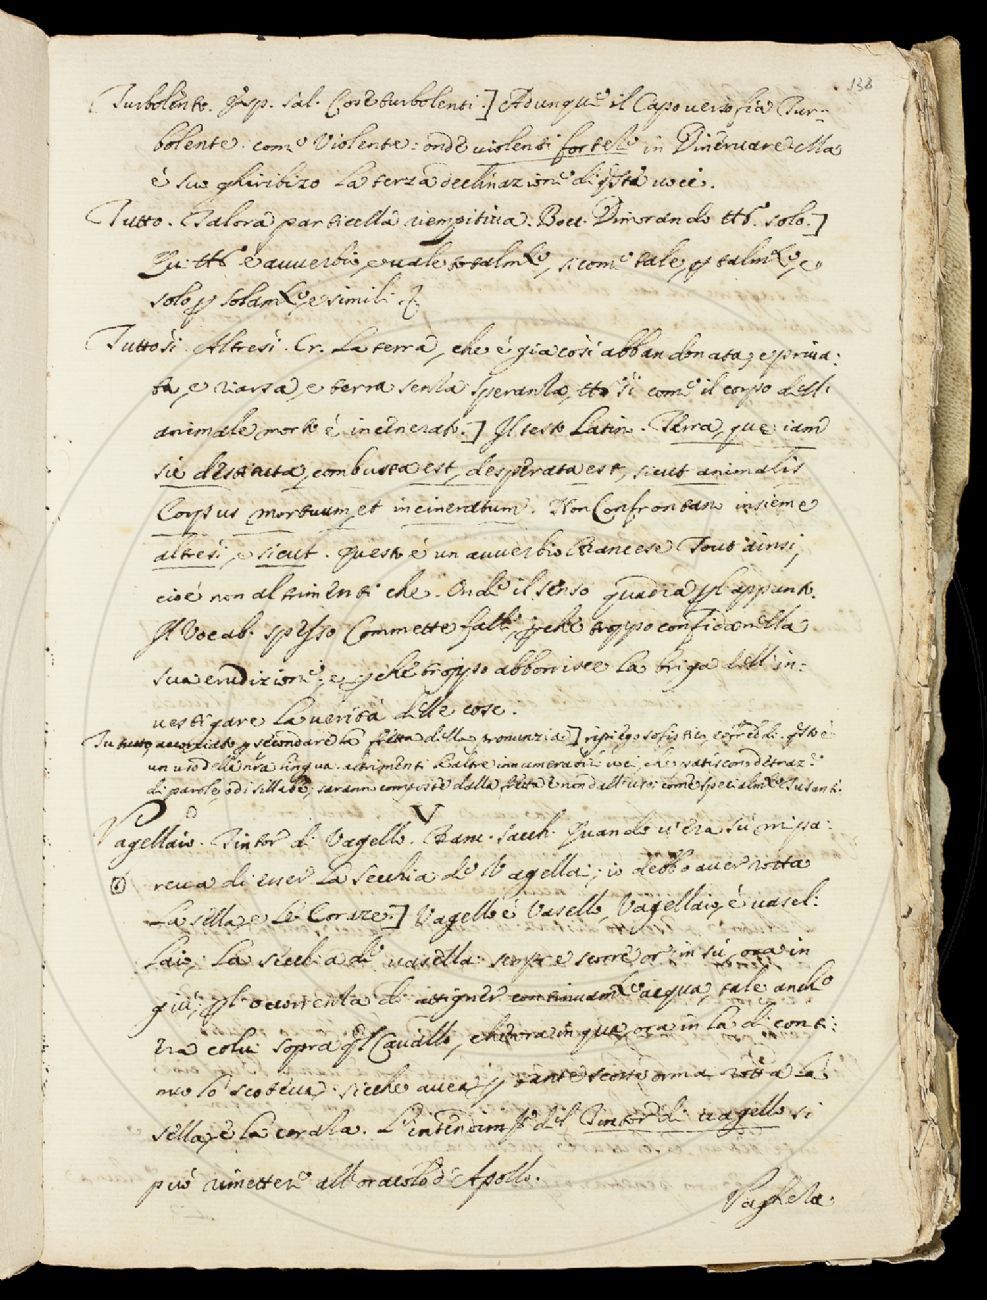 138
Turbolento. Gr. Sal. Cose turbolenti.] Adunque il Capoverso sia Tur-
bolente. come Violente: onde violenti fortelo in Vinervare ella
è suo ghiribizo la terza declinazione di qsta voce.
Tutto. Talora particella riempitiva. Bocc. Dimorando tto solo.]
Qui tto è avverbio, e vale totalmte, sicome tale, p talmte, e
solo p solamte, e simili.
Tuttosi. Altresi. Cr. La terra, che è gia cosi abbandonata, e priva-
ta, e riarsa, e terra senza speranza, ttosi come il corpo dell'
animale morto è incinerato.] Il testo Latino. Terra, que iam
sic destituta, combusta est, desperata est, sicut animalis
Corpus mortuum, et incineratum. Non Confrontano insieme
altresi, e sicut. Questo è un avverbio Francese Tout ainsi,
cioè non altrimenti che. Onde il senso quadra pl'appunto.
Il Vocab. spesso Commette falli, pche troppo confida nella
sua erudizione, e pche troppo abborrisce la briga dell'in-
vestigare la verità delle cose.
Tututto, accorciato p secondare la fretta della pronunzia] ripiego sofistico, e
un uso della nra lingua. altrimenti l'altre innumerabili voci, che
di parole, o di sillabe, saranno composte dalla fretta e non dall'uso: come specialmte Susanti.
V
Vagellaio. Tintor di Vagello. Franc. Sacch. Quando v'era su mi pa-
reva di esser la secchia de Vagellai; io debbo aver rotta
La sella, e le Corate.] Vagello è Vasello, Vagellaio, è vasel-
laio; La secchia di vasella sempre scorre or in su, ora in
giù; pl'occorrenza di attigner continuamte acqua, tale anche
era colui sopra ql Cavallo, che ora in qua, ora in la di conti-
nuo lo scoteva: sicche avea p tante scosse orma rotta la
sella, e la corala. L' del Tintor di vagello si
può rimettere all'oracolo d'Apollo.
Vaghela.